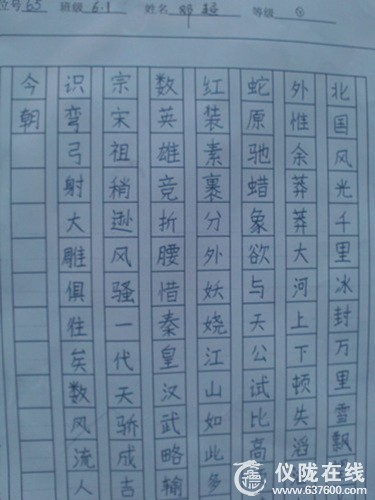 号 65 班级 6.1 姓名 等级
北国风光千里冰封万里雪飘
外惟余莽莽大河上下顿失滔
蛇原驰蜡象欲与天公试比高
红装素裹分外妖娆江山如此多
数英雄竞折腰惜秦皇汉武略输
宗宋祖稍逊风骚一代天骄成吉
识弯弓射大雕俱往矣数风流人
今朝
仪陇在线
www.637600.com